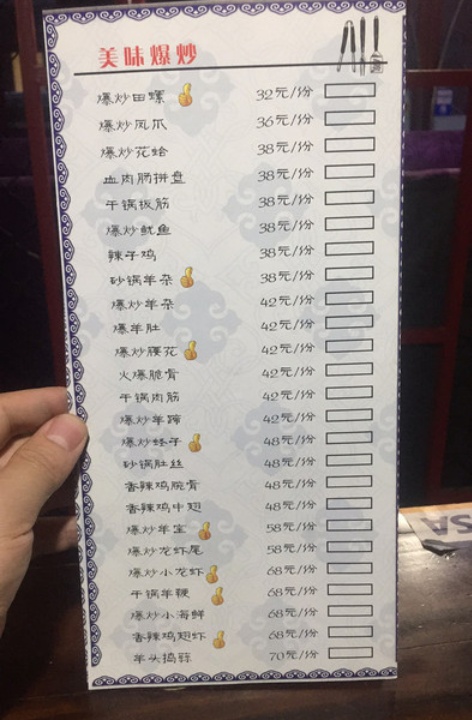 美味爆炒
爆炒田螺 32元/份
爆炒凤爪 36元/份
爆炒花蛤 38元/份
血肉肠拼盘 38元/份
干锅板筋 38元/份
爆炒鱿鱼 38元/份
辣子鸡 38元/份
砂锅羊杂 38元/份
爆炒羊杂 42元/份
爆羊肚 42元/份
爆炒腰花 42元/份
火爆脆骨 42元/份
干锅肉筋 42元/份
爆炒羊蹄 42元/份
爆炒蛏子 48元/份
砂锅肚丝 48元/份
香辣鸡脆骨 48元/份
香辣鸡中翅 48元/份
爆炒羊宝 58元/份
爆炒龙虾尾 58元/份
爆炒小龙虾 68元/份
干锅羊鞭 68元/份
爆炒小海鲜 68元/份
香辣鸡翅虾 68元/份
羊头捣蒜 70元/份